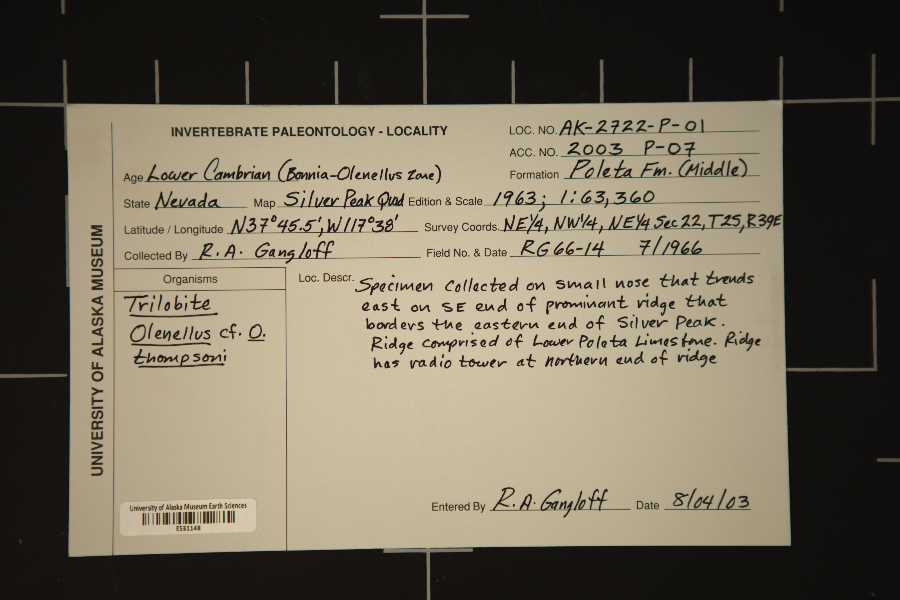 INVERTEBRATE PALEONTOLOGY - LOCALITY
LOC. NO. AK-2722-P-01
ACC. NO. 2003 P-07
Age Lower Cambrian (Bonnia-Olenellus Zone)
Formation Poleta Fm. (Middle)
State Nevada Map Silver Peak Quad Edition & Scale 1963; 1:63,360
Latitude / Longitude N37°45.5', W117°38' Survey Coords. NE1/4, NW1/4, NE1/4 Sec 22, T2S, R39E
Collected By R.A. Gangloff Field No. & Date RG66-14 7/1966
Organisms
Trilobite
Olenellus cf. O.
thompsoni
Loc. Descr. Specimen collected on small nose that trends
east on SE end of prominant ridge that
borders the eastern end of Silver Peak.
Ridge comprised of Lower Poleta Limestone. Ridge
has radio tower at northern end of ridge
Entered By R.A. Gangloff Date 8/04/03
University of Alaska Museum Earth Sciences
ES31148
UNIVERSITY OF ALASKA MUSEUM